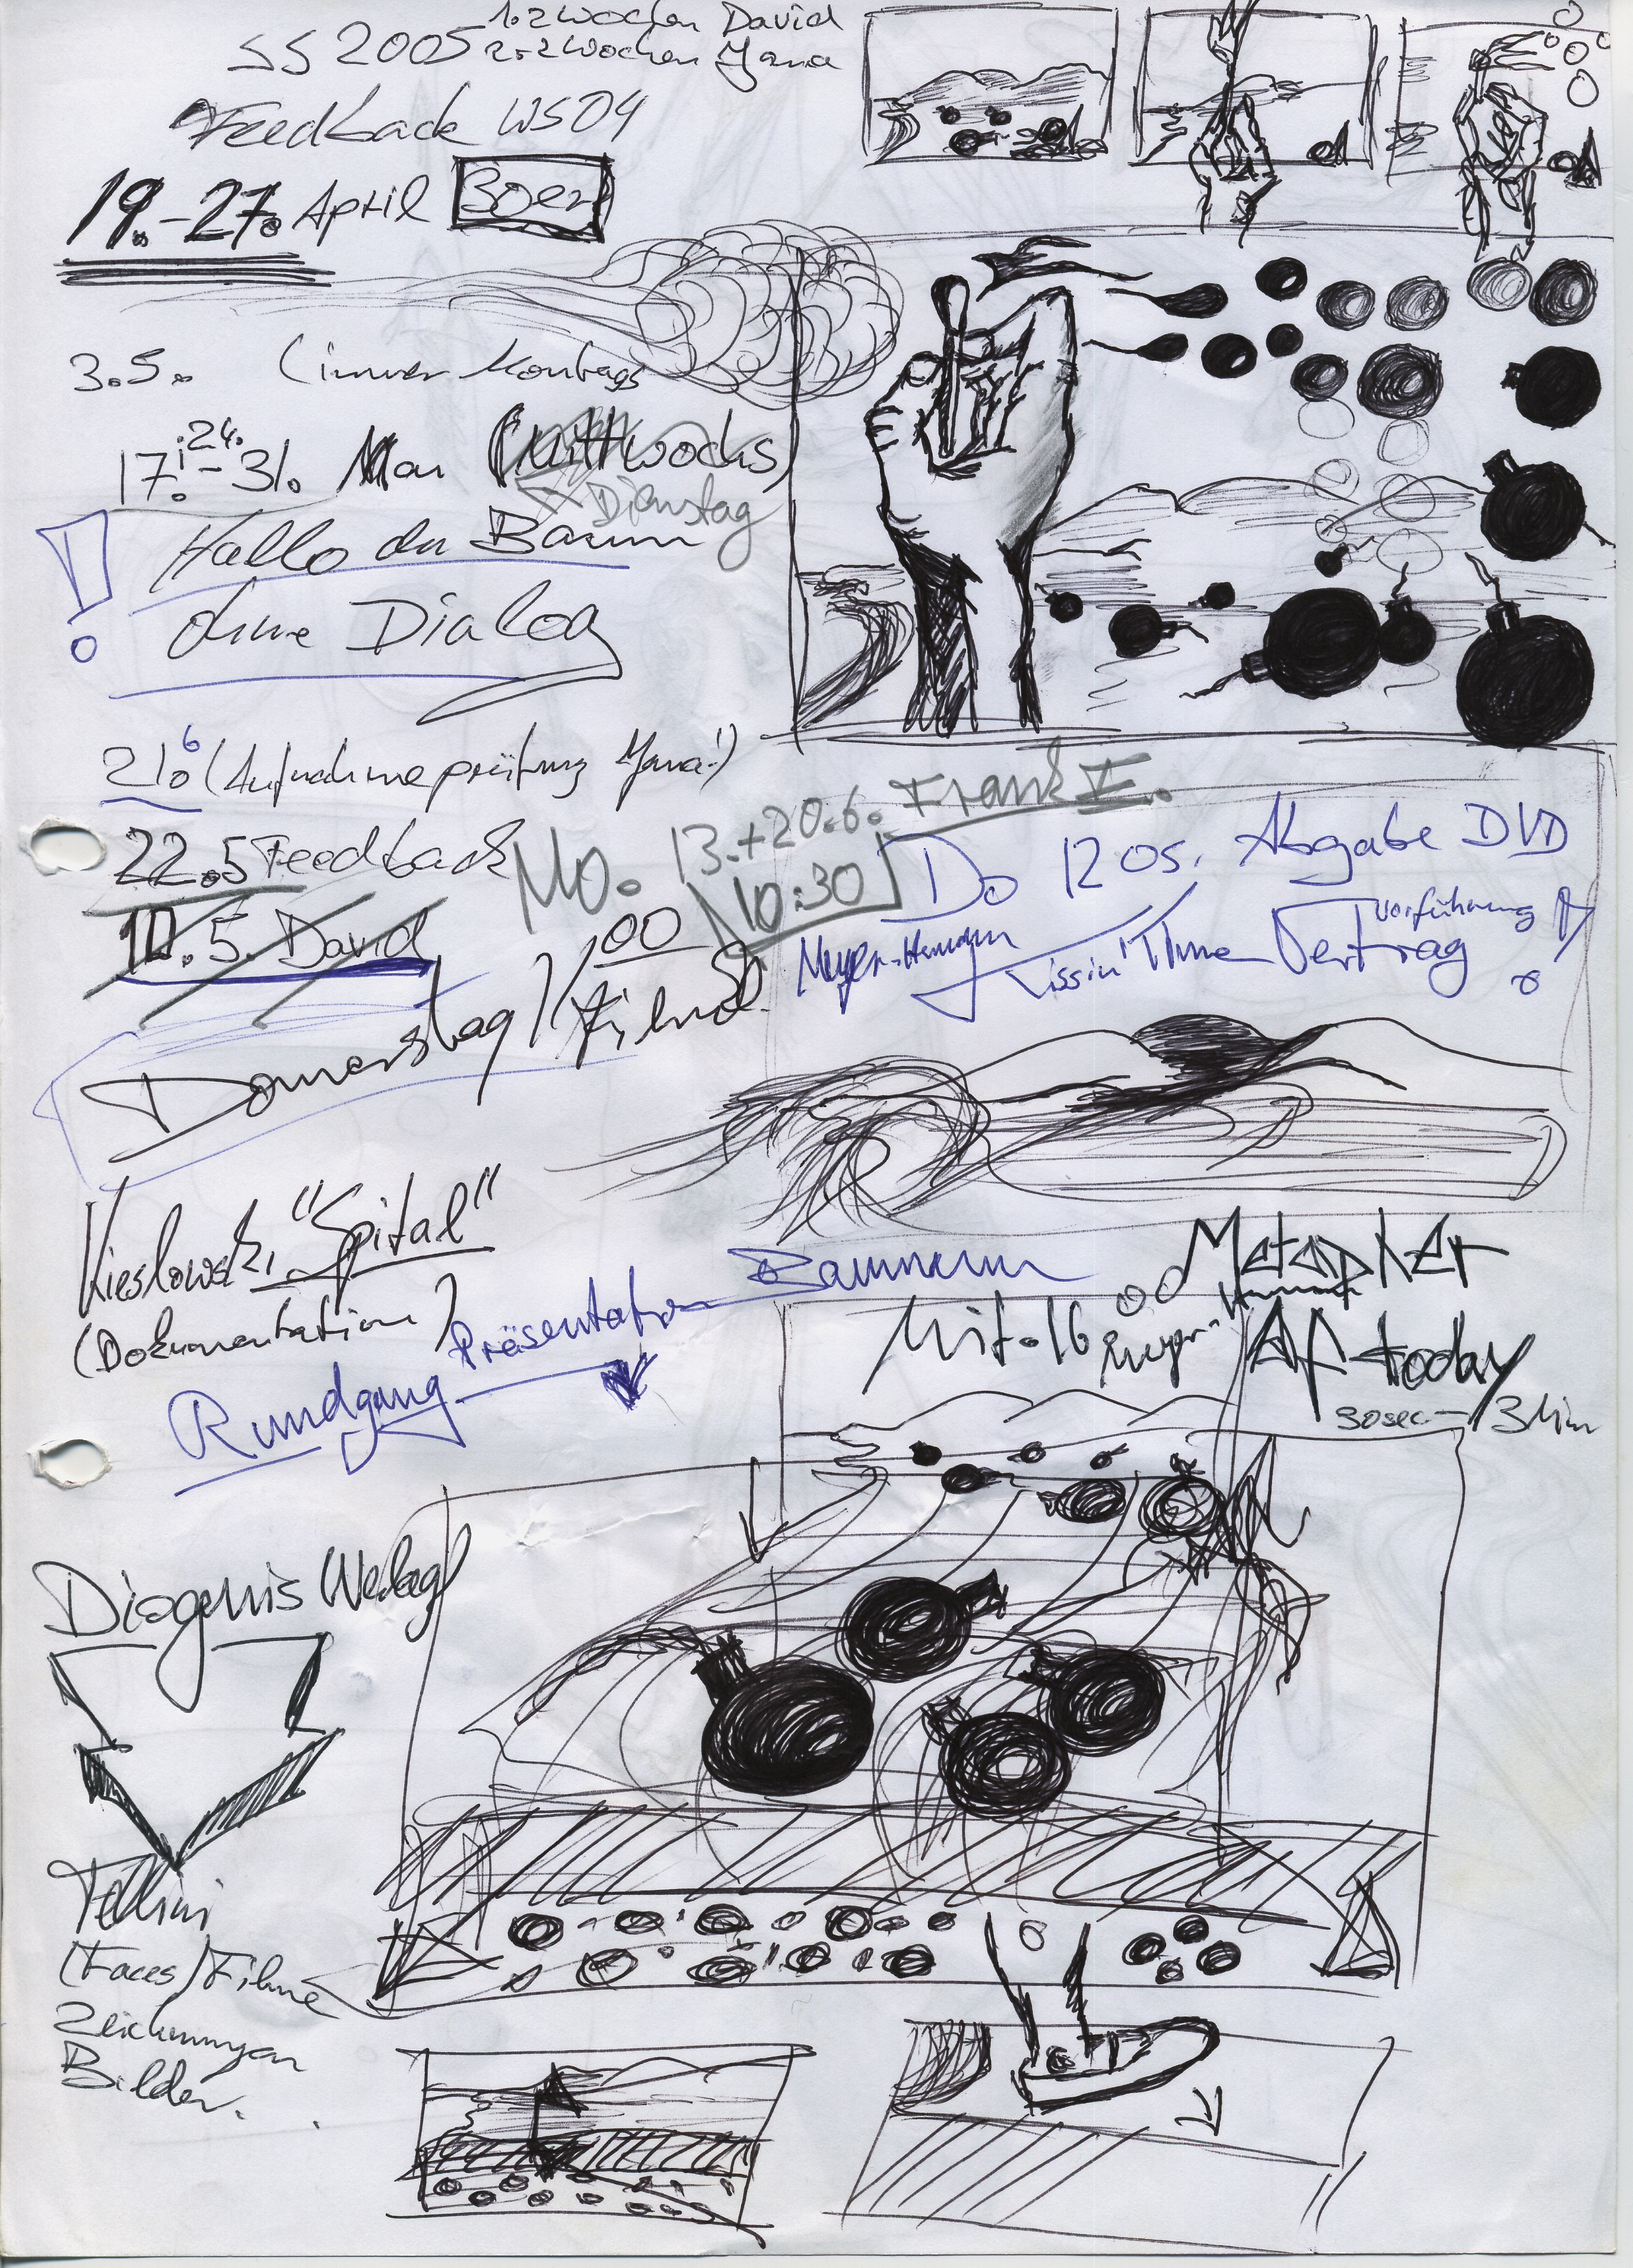 SS 2005
1.2 Wochen David
2.2 Wochen Yana
Feedback WS04
19.-27. April 30er
3.5. (immer Montags
24.
17.-31. Mai (Mittwochs)
Dienstag
Hallo du Baum
ohne Dialog
21.6 (Aufnahmeprüfung Yana!)
22.5 Feedback
Mo. 13.+20.6. Frank
10:30
10.5. David
Do 12 05. Abgabe DVD
Vorführung
Vertrag
Donnerstag 00
Kieslowski "Spital"
(Dokumentation)
Präsentation Baumann
Rundgang
od Metapher
Mit-16
AF today
30sec - 3Min
Diogenis Verlag
Fellini
(Faces) Filme
Zeichnungen
Bilder.